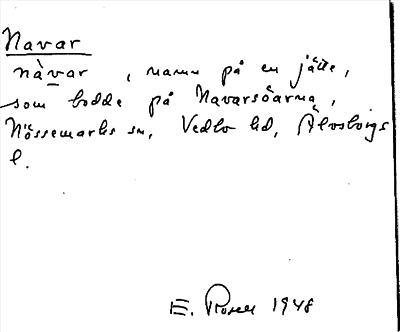 Navar
nàvar, namn på en jätte,
som bodde på Navarsöarna,
Nössemarks sn, Vedbo hd, Älvsborgs
l.
E. Rosell 1948